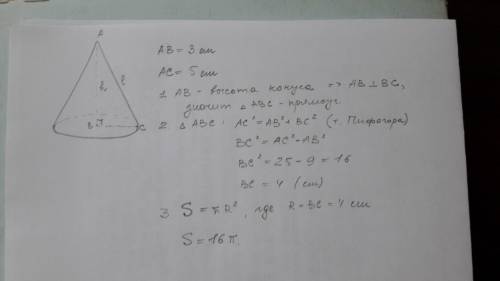 A
h
l
B
r
C
AB = 3 см
AC = 5 см
1 AB - высота конуса => AB ⊥ BC,
значит △ ABC - прямоуг
2. △ ABC: AC² = AB² + BC² (т. Пифагора)
BC² = AC² - AB²
BC² = 25 - 9 = 16
BC = 4 (см)
3 S = πR², где R = BC = 4 см
S = 16π.